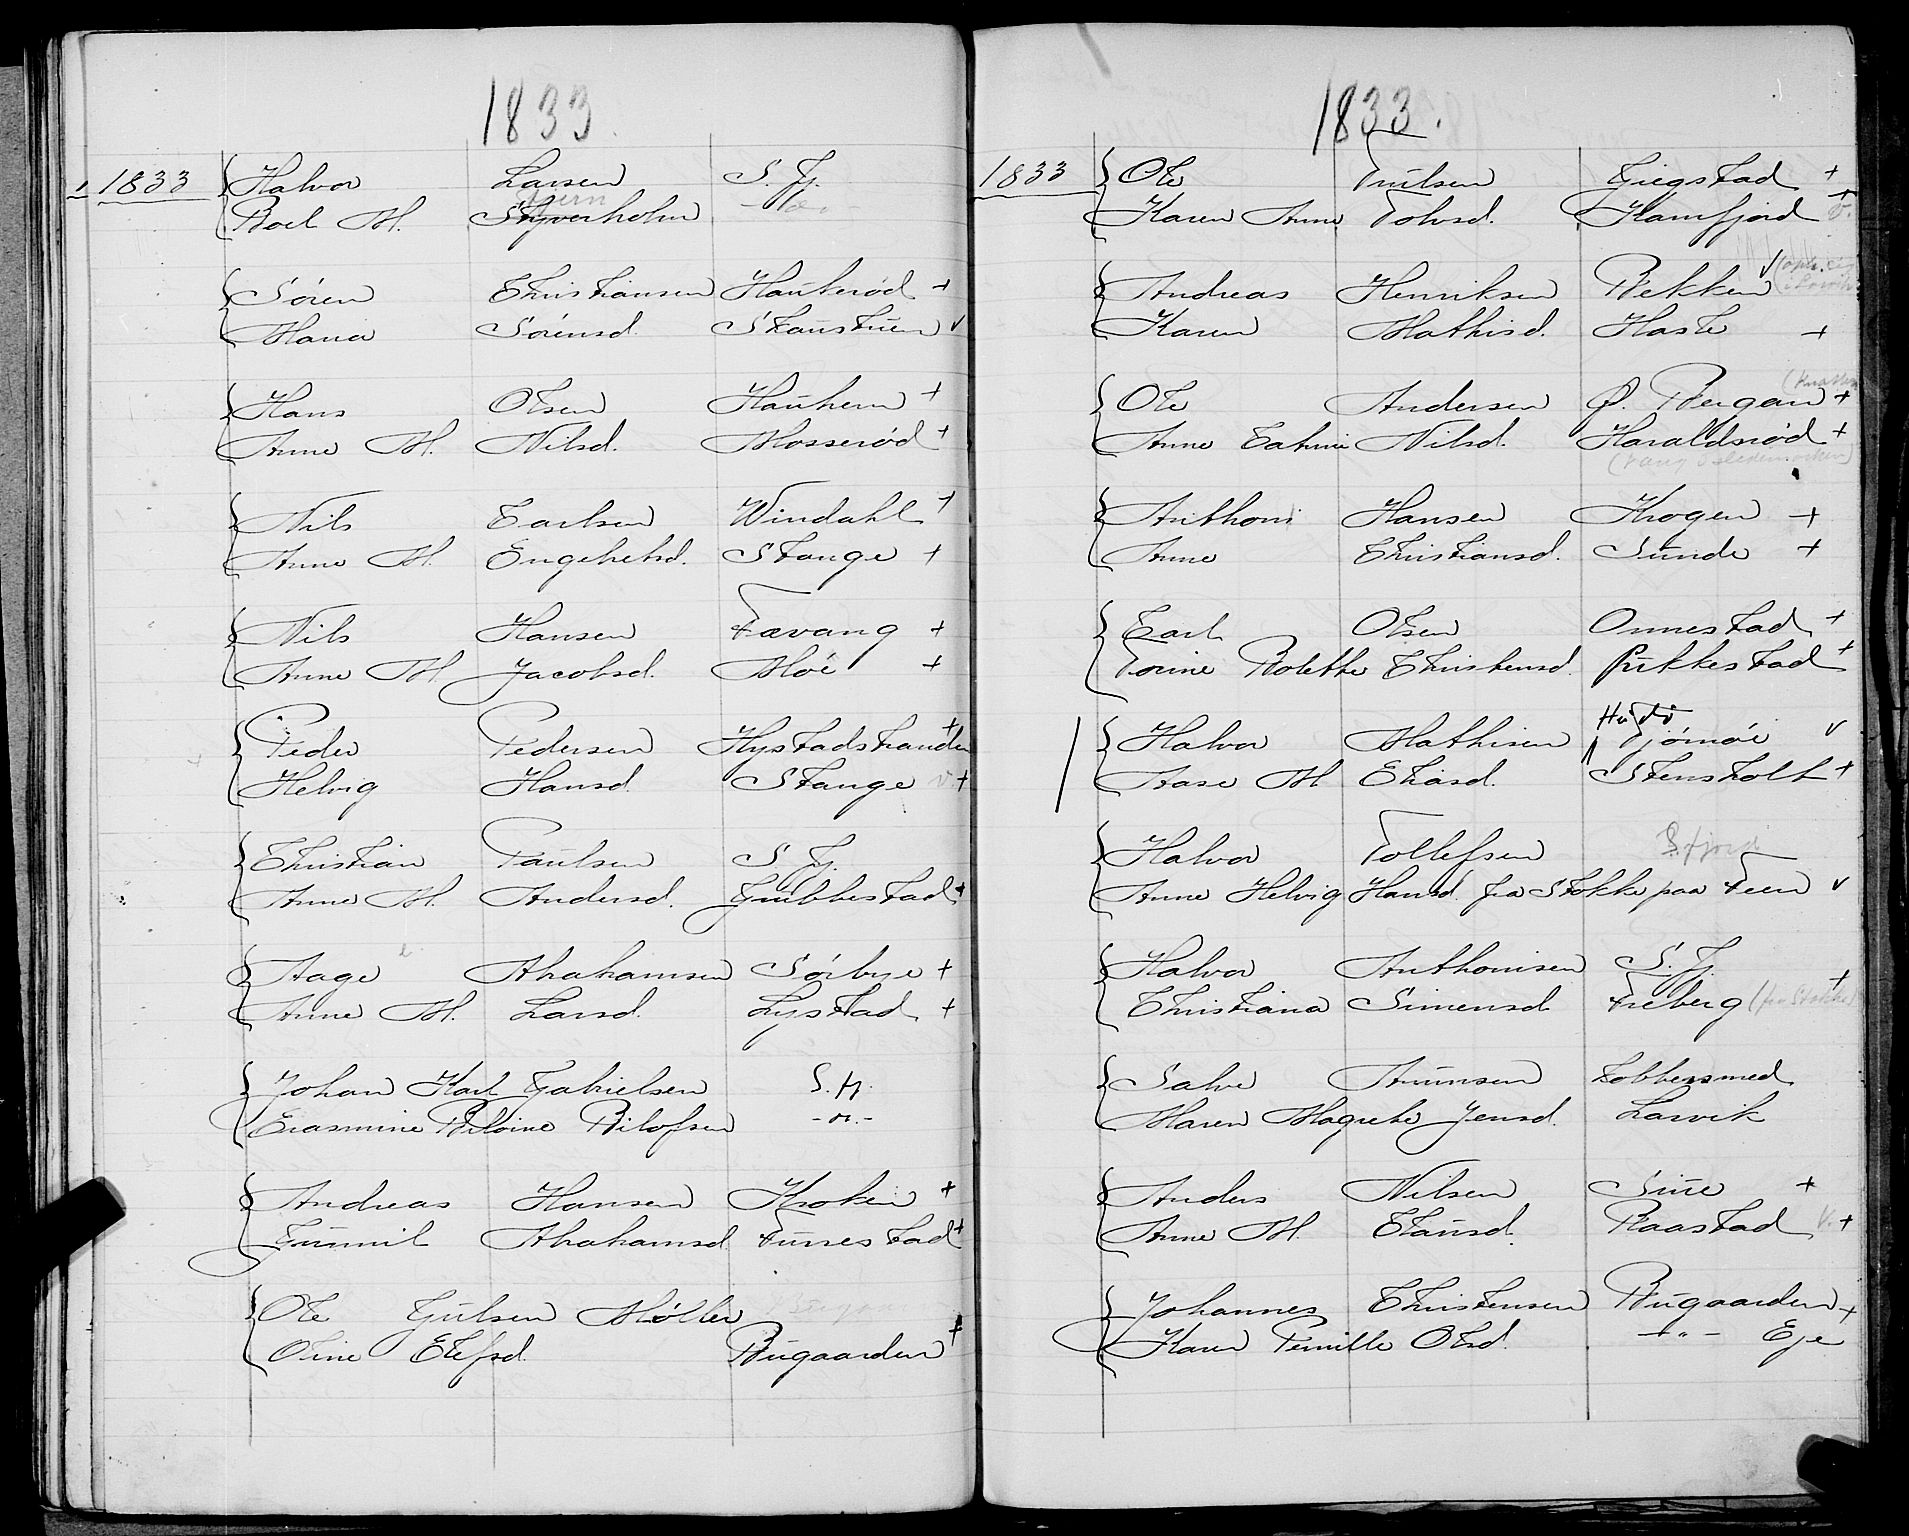 1833.
1833 Halvor Larsen S. Fj.
Boel M. Styverholm
Sören Christiansen Haukerød +
Maria Sörensd. Staustuen v
Hans Olsen Hauhem +
Anne M. Nilsd. Mosserød +
Nils Carlsen Windahl +
Anne M. Engebretsd. Stange +
Nils Hansen Fævang +
Anne M. Jacobsd. Moe +
Peder Pedersen Hystadstranden +
Helvig Hansd. Stange v. +
Christian Paulsen S. Fj.
Anne M. Andersd. Gubbestad +
Aage Abrahamsen Sörbye +
Anne M. Larsd. Lystad +
Johan Karl Gabrielsen S. Fj.
Erasmine Bilofsen -"-
Andreas Hansen Kroken +
Gunnil Abrahamsd. Furrestad +
Ole Gulsen Møller
Oline Elefsd. Bugaarden +
1833.
1833 Ole Trulsen Gjegstad +
Karen Anne Tolvsd. Kamfjord +
Andreas Henriksen Bekken v
Karen Mathisd. Hasle +
Ole Andersen Ø. Bergan +
Anne Catrine Nilsd. Haraldsrød +
Anthoni Hansen Krogen +
Anne Christiansd. Sunde +
Carl Olsen Onnestad +
Torine Bolette Christensd. Pukkestad +
Halvor Mathisen Tjömöe v
Aase M. Eliasd. Stensholt +
Halvor Tollefsen S. fjord
Anne Helvig Hansd. fra Stokke paa Feen v
Halvor Anthonisen S. Fj.
Christiana Simensd. Freberg (fra Stokke) +
Salve Aamunsen Kobbersmed
Maren Magrete Jensd. Larvik
Anders Nilsen Sue +
Anne M. Clausd. Raastad v. +
Johannes Christensen Bugaarden +
Karen Pernille Olsd. -"- Eje